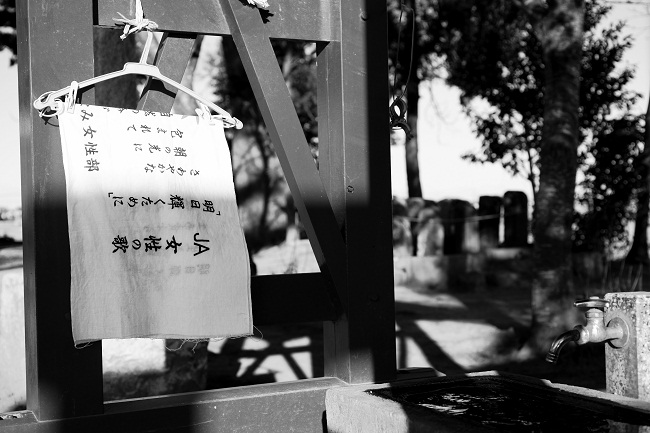 JA 女性の歌
「明日 輝くために」
さわやかな
朝の光に
包まれて
み女性部